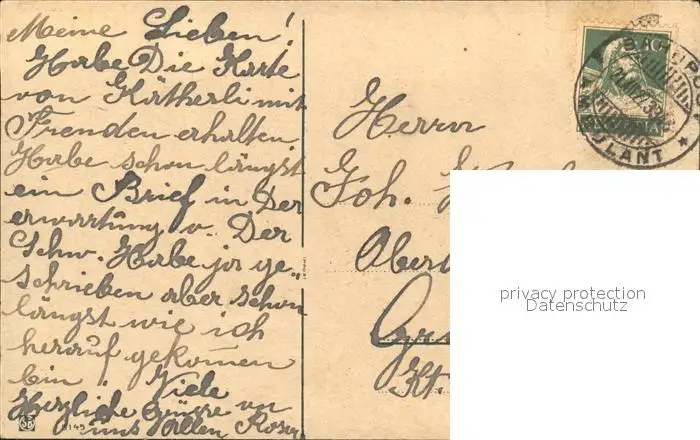 Meine Lieben!
Habe Die Karte
von Kätherli mit
Freuden erhalten.
Habe schon längst
ein Brief in Der
erwartung v. Der
Schw. Habe ja ge„
schrieben aber schon
längst wie ich
herauf gekomen
bin. Viele
Herzliche Grüsse von
uns Allen Rosa
Herrn
Joh.
Kt.
10
HELVETIA
AMBULANT
privacy protection
Datenschutz